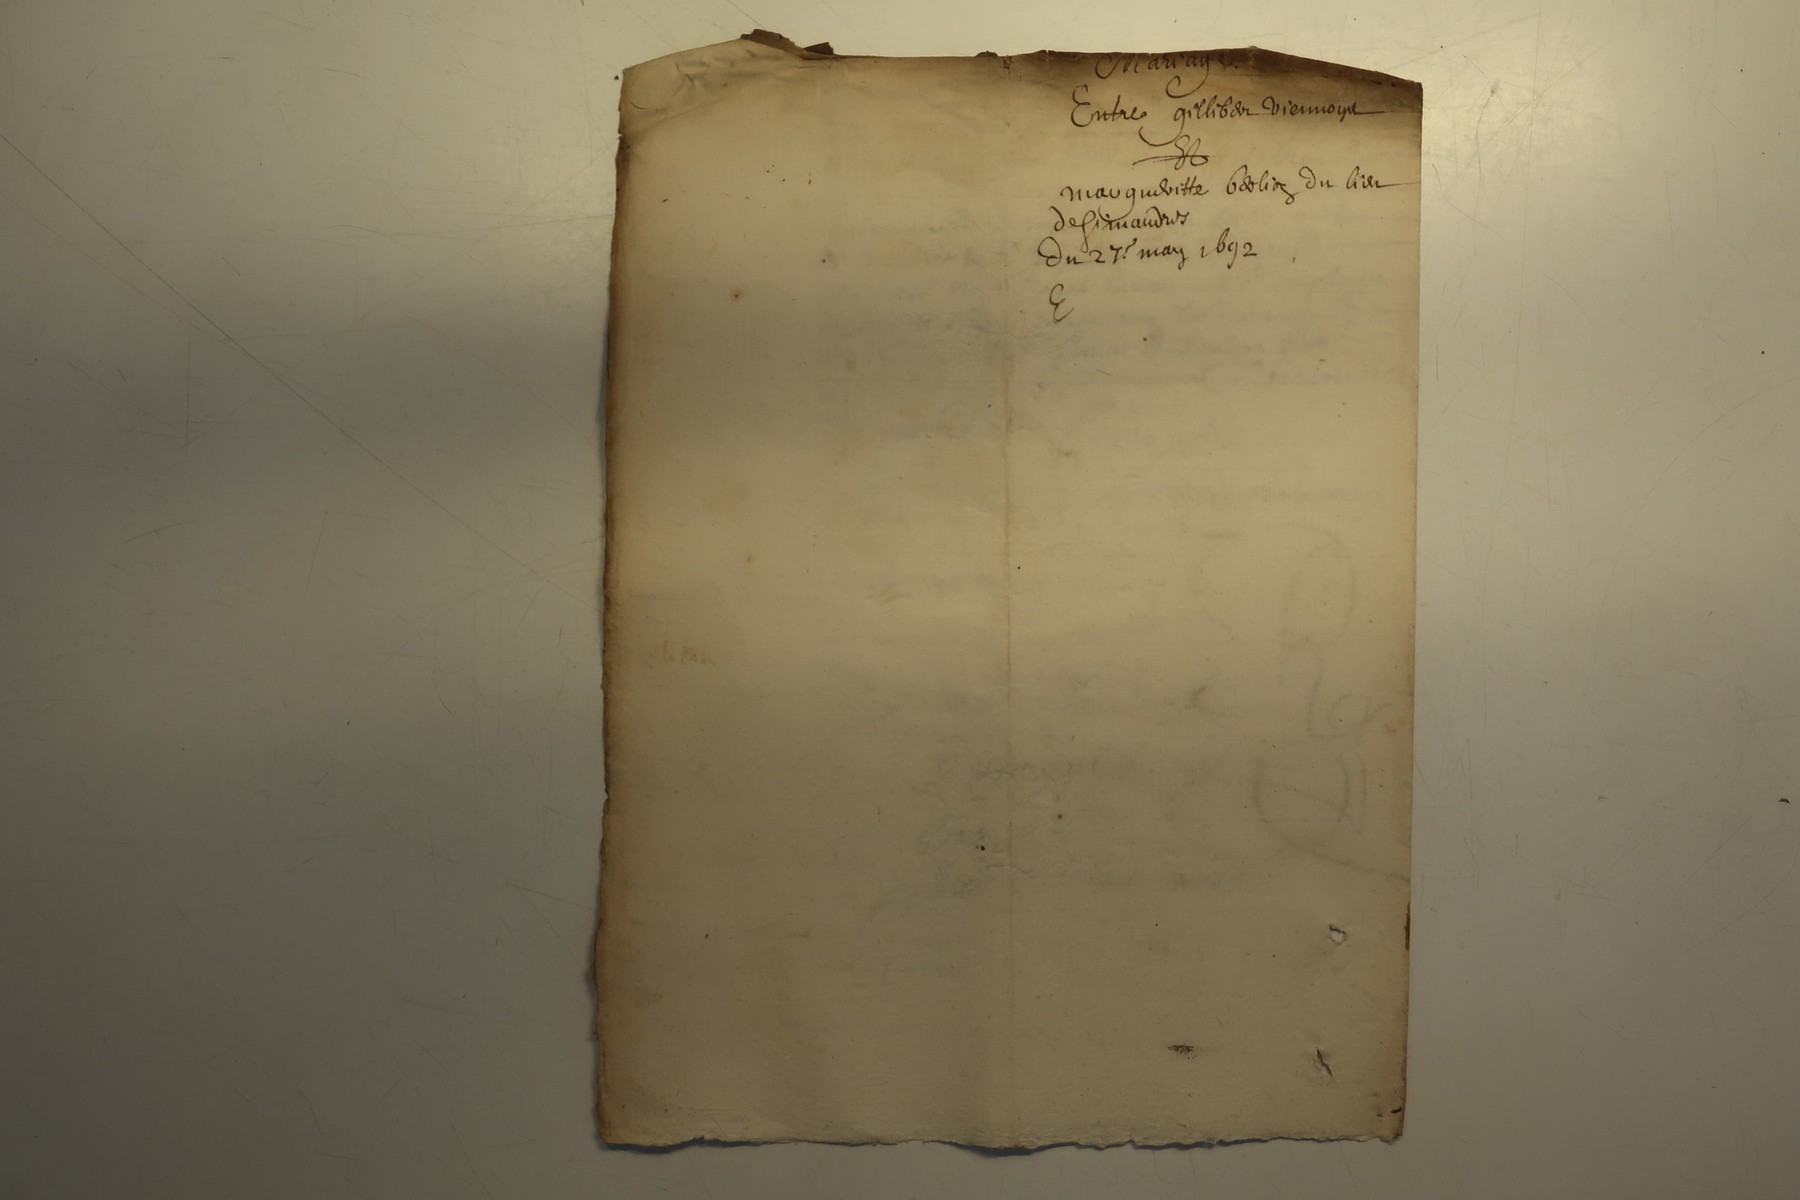 Mariage.
Entre gilliber viennoys
Et
margueritte berlioz du lieu
de simandres
du 27e may 1692
E